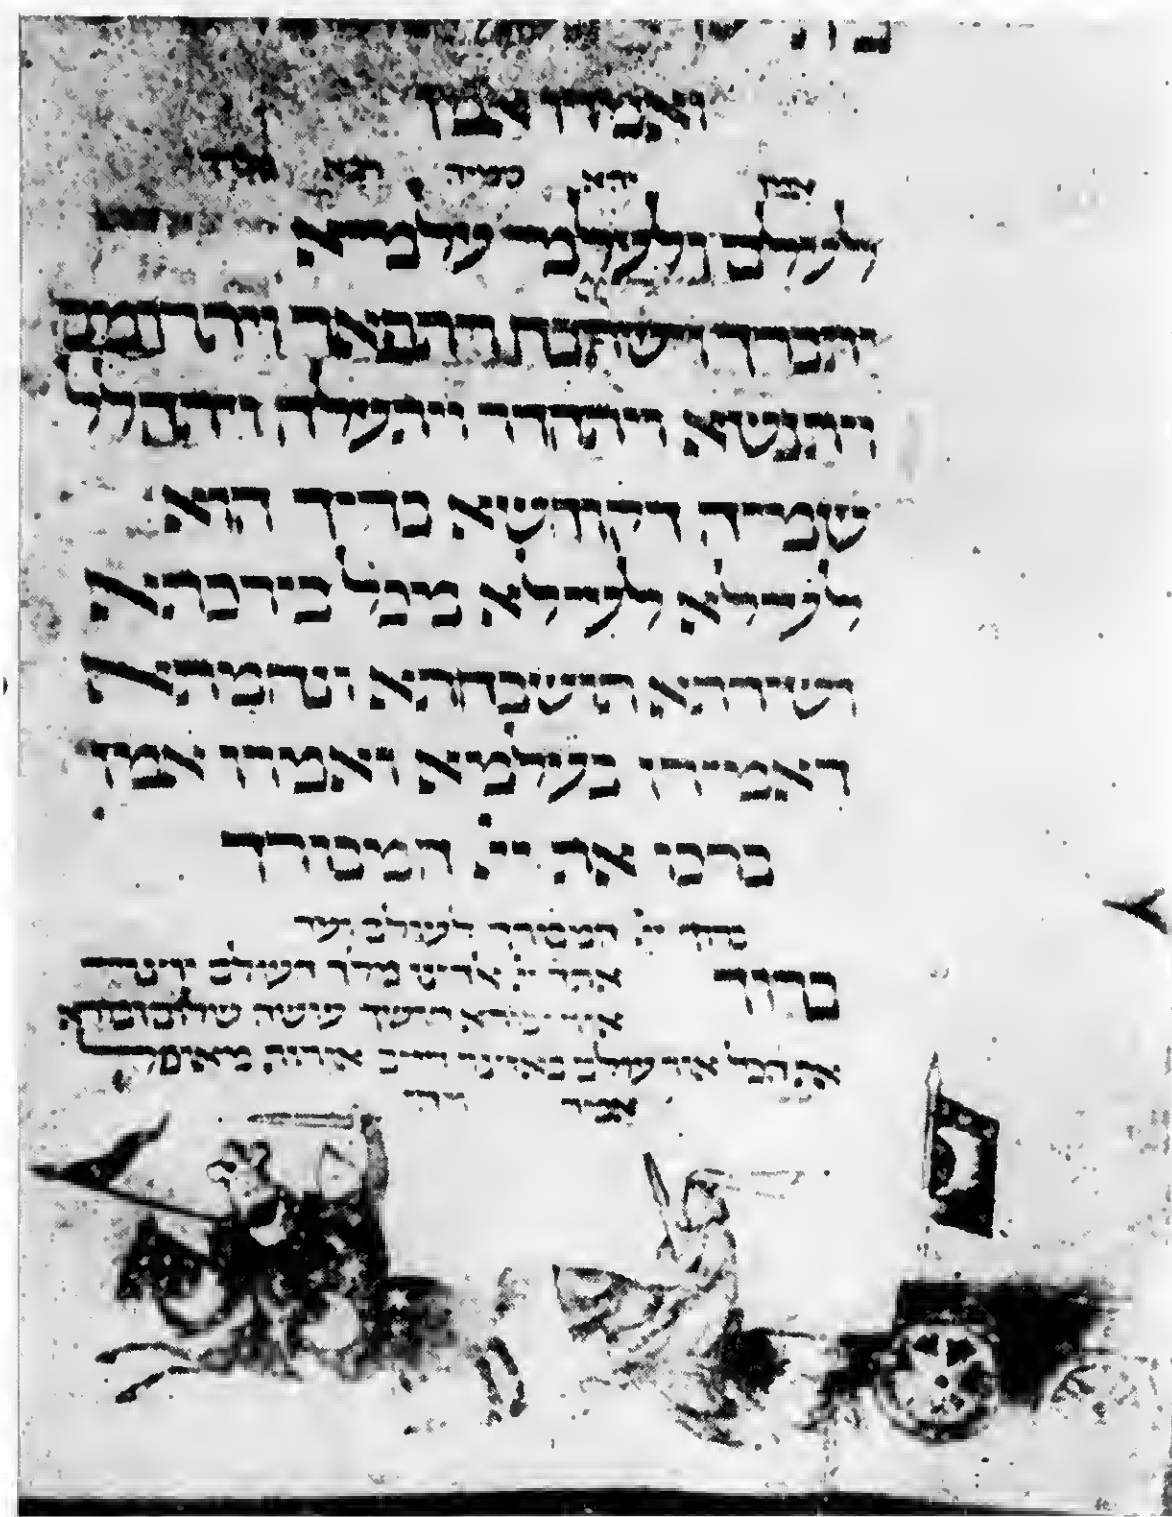 ואמרו אמן
אמן יהא שמיה רבא
לעלם ולעלמי עלמיא
יתברך וישתבח ויתפאר ויתרומם
ויתנשא ויתהדר ויתעלה ויתהלל
שמיה דקודשא בריך הוא
לעילא לעילא מכל בירכתא
ושירתא תושבחתא ונחמתא
דאמירן בעלמא ואמרו אמן
ברכו את ייי המבורך
ברוך ייי המבורך לעולם ועד
ברוך אתה ייי אלהינו מלך העולם יוצר
אור ובורא חושך עושה שלום ובורא
את הכל אור עולם באוצר חיים אורות מאופל
אמר ויהי